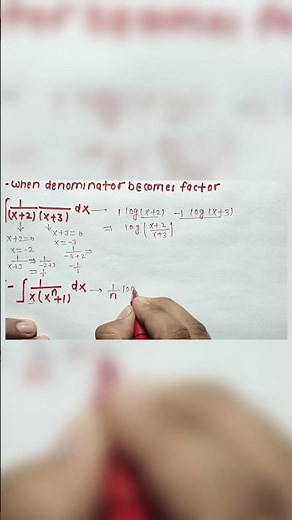 - when denominator becomes factor
∫ 1/((x+2)(x+3)) dx → 1 log(x+2) - 1 log(x+3)
⇒ log[(x+2)/(x+3)]
x+2=0 x+3=0
x=-2 x=-3
1/(x+3) ⇒ 1/(-2+3) 1/(-3+2) ⇒
⇒ 1/1 -1/1
- ∫ 1/(x(xⁿ+1)) dx → 1/n lo